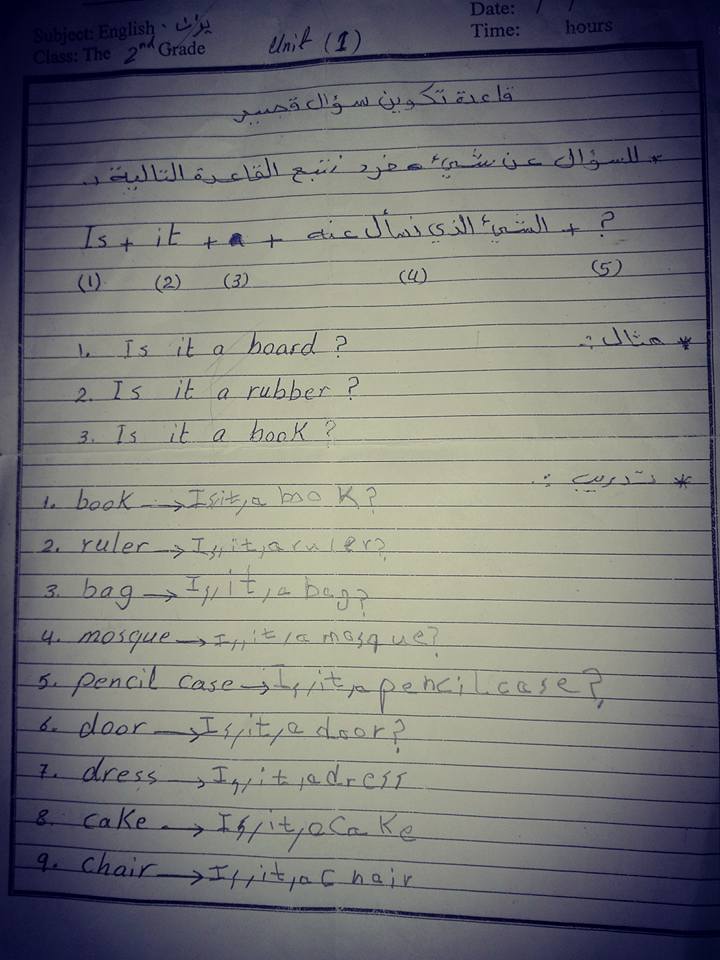 Date: / /
Subject: English يزن
Time: hours
Class: The 2nd Grade Unit (1)
قاعدة تكوين سؤال قصير
* للسؤال عن شيء مفرد نتبع القاعدة التالية :.
Is + it + a + الشيئ الذي نسأل عنه + ?
(1) (2) (3) (4) (5)
* مثال :.
1. Is it a board ?
2. Is it a rubber ?
3. Is it a book ?
* تدريب :.
1. book → Is, it, a book?
2. ruler → Is, it, a ruler?
3. bag → Is, it, a bag?
4. mosque → Is, it, a mosque?
5. pencil case → Is, it, a pencil case?
6. door → Is, it, a door?
7. dress → Is, it, a dress
8. cake → Is, it, a cake
9. chair → Is, it, a chair